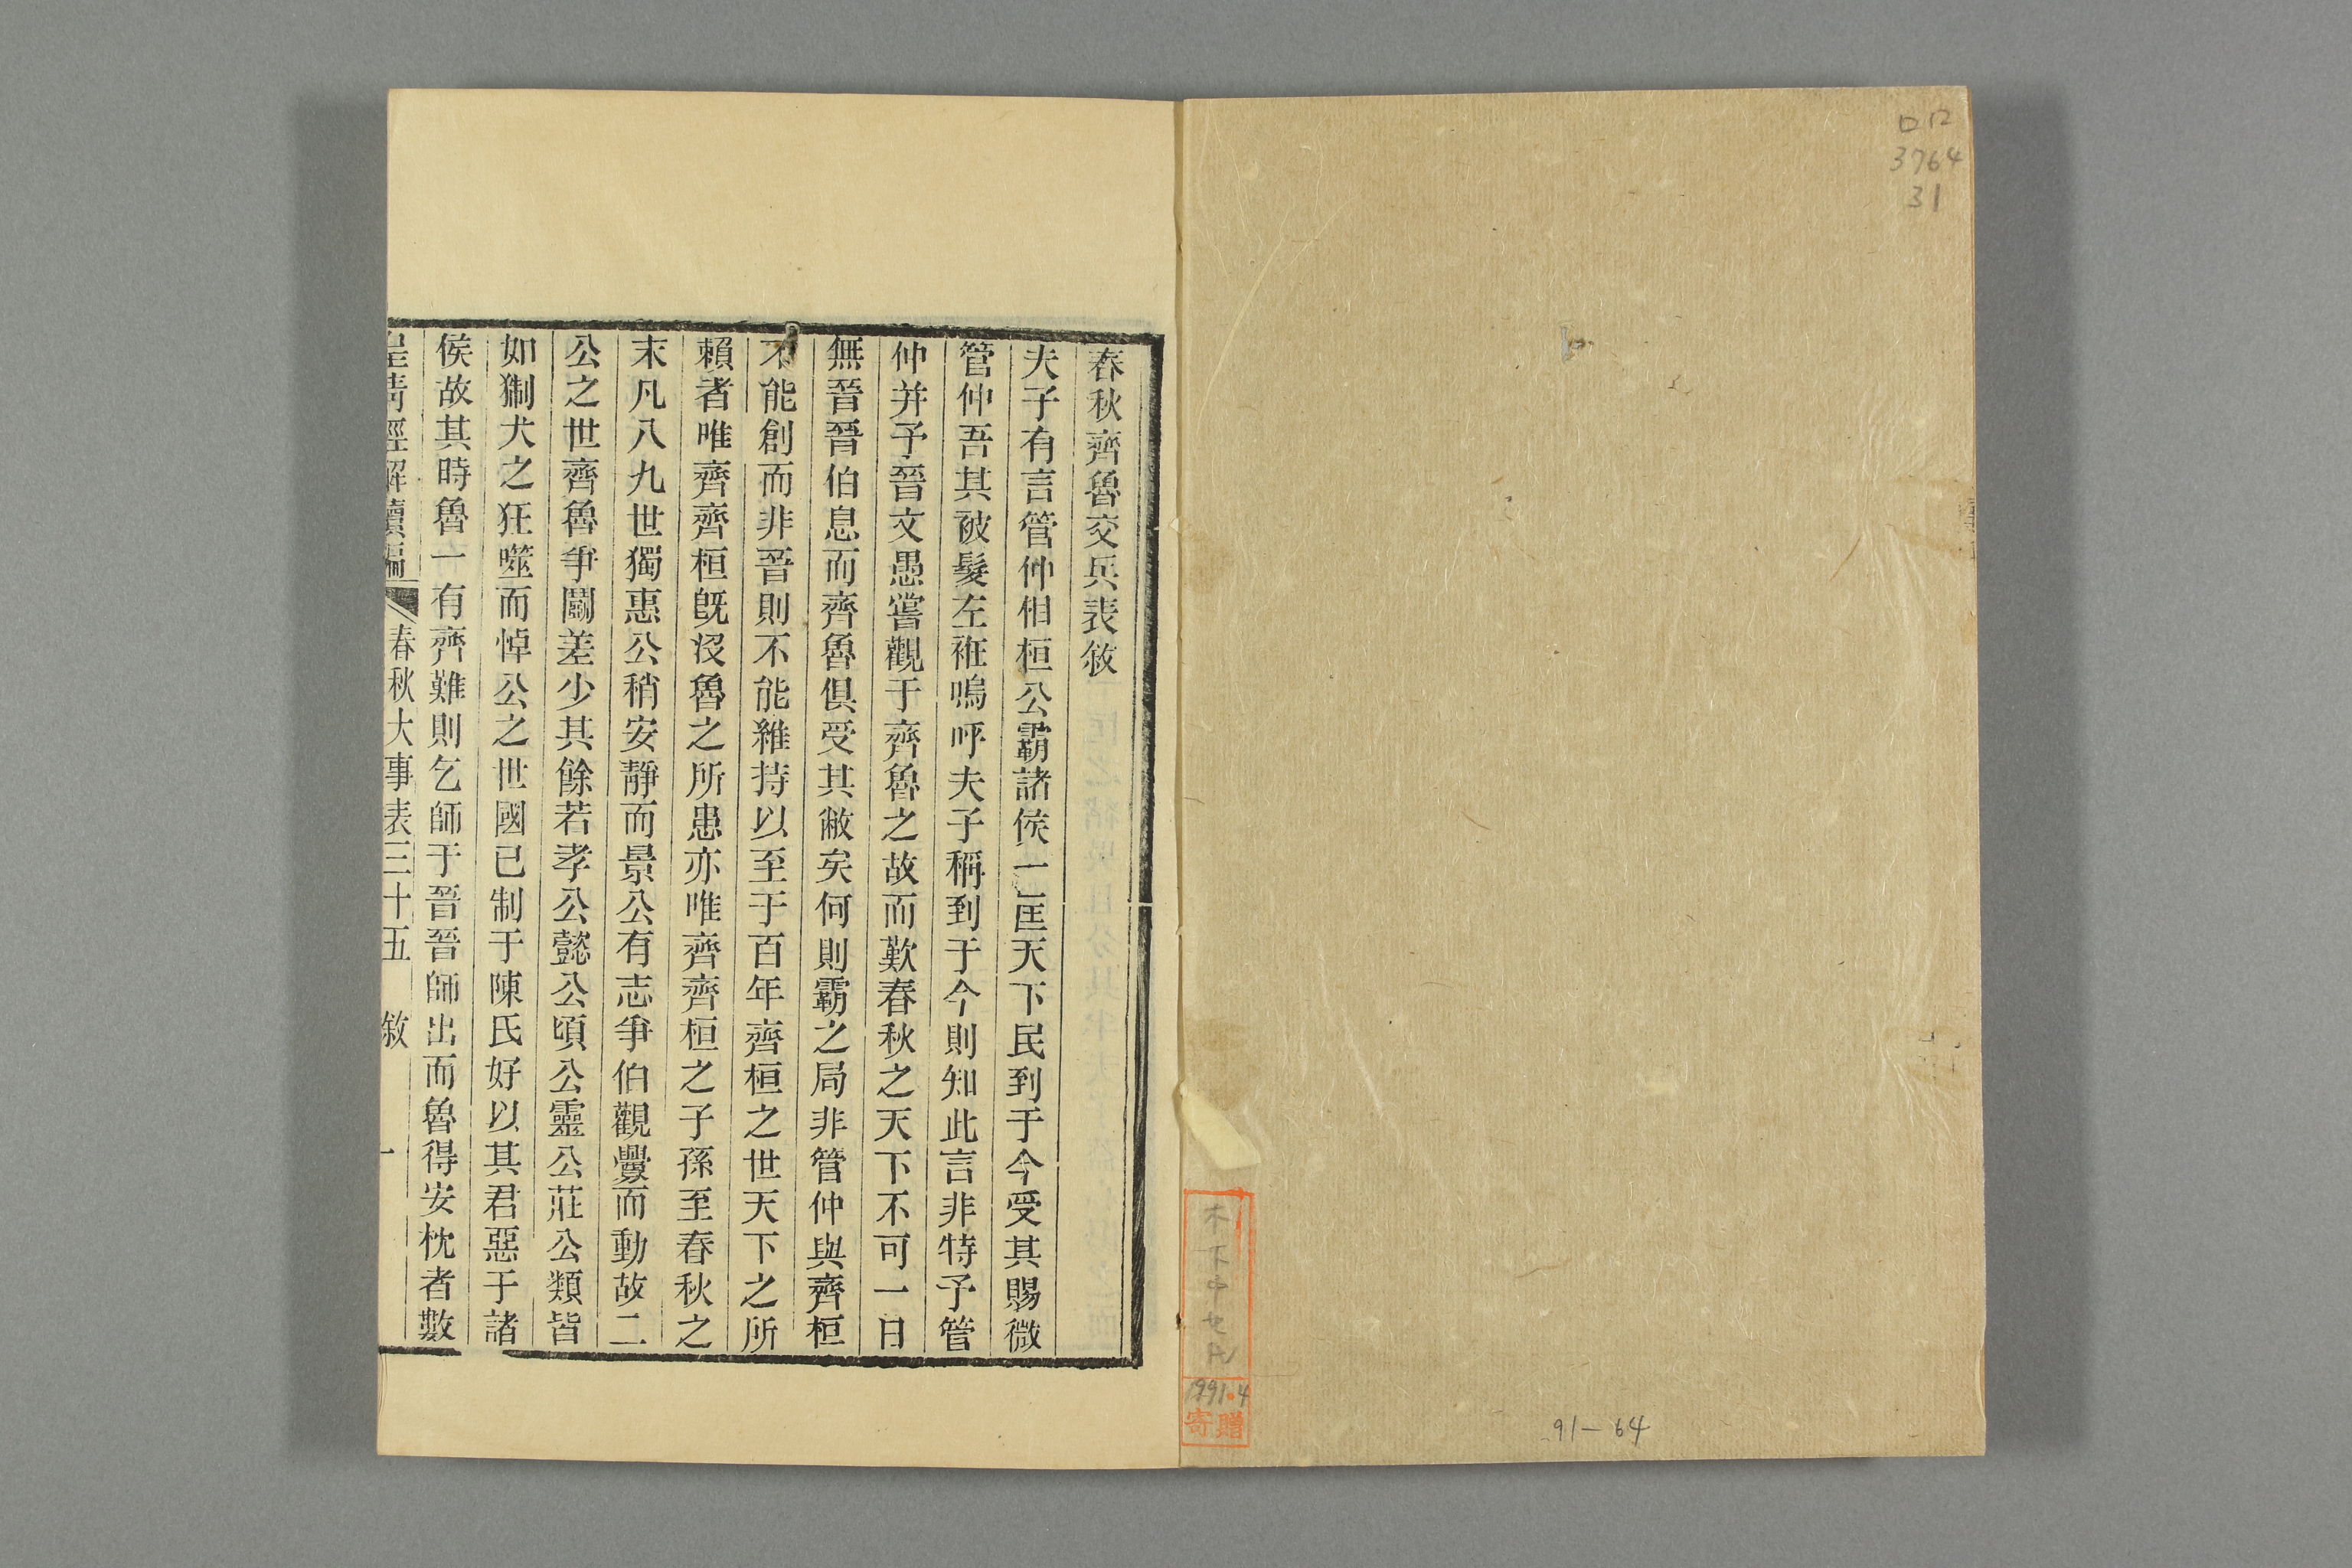 ロ12
3764
31
木下中
1991.4
寄贈
91-64
春秋齊魯交兵表敘
夫子有言管仲相桓公霸諸侯一匡天下民到于今受其賜微
管仲吾其被髮左衽嗚呼夫子稱到于今則知此言非特予管
仲并予晉文愚嘗觀于齊魯之故而歎春秋之天下不可一日
無晉晉伯息而齊魯俱受其敝矣何則霸之局非管仲與齊桓
不能創而非晉則不能維持以至于百年齊桓之世天下之所
賴者唯齊齊桓既沒魯之所患亦唯齊齊桓之子孫至春秋之
末凡八九世獨惠公稍安靜而景公有志爭伯觀釁而動故二
公之世齊魯爭鬭差少其餘若孝公懿公頃公靈公莊公類皆
如猘犬之狂噬而悼公之世國已制于陳氏好以其君惡于諸
侯故其時魯一有齊難則乞師于晉晉師出而魯得安枕者數
皇清經解續編 春秋大事表三十五 敘 一